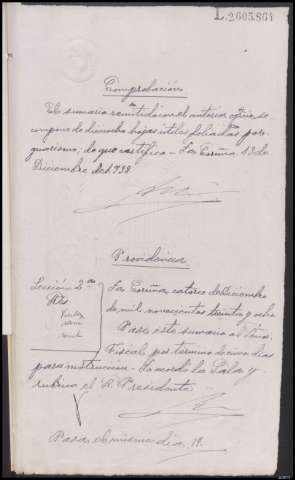 L.2605.864
Comprobación
El sumario remitido con el anterior oficio, se
compone de dieciocho hojas útiles foliadas por
guarismo; de que certifico - La Coruña, 13 de
Diciembre de 1938
Providencia
Sección 2ª
La Coruña catorce de Diciembre
de mil novecientos treinta y ocho
Pase este sumario al
Fiscal por termino de cinco dias
para instruccion - Lo acordó la Sala y
rubrica el Sr. Presidente
Pasa el mismo dia.